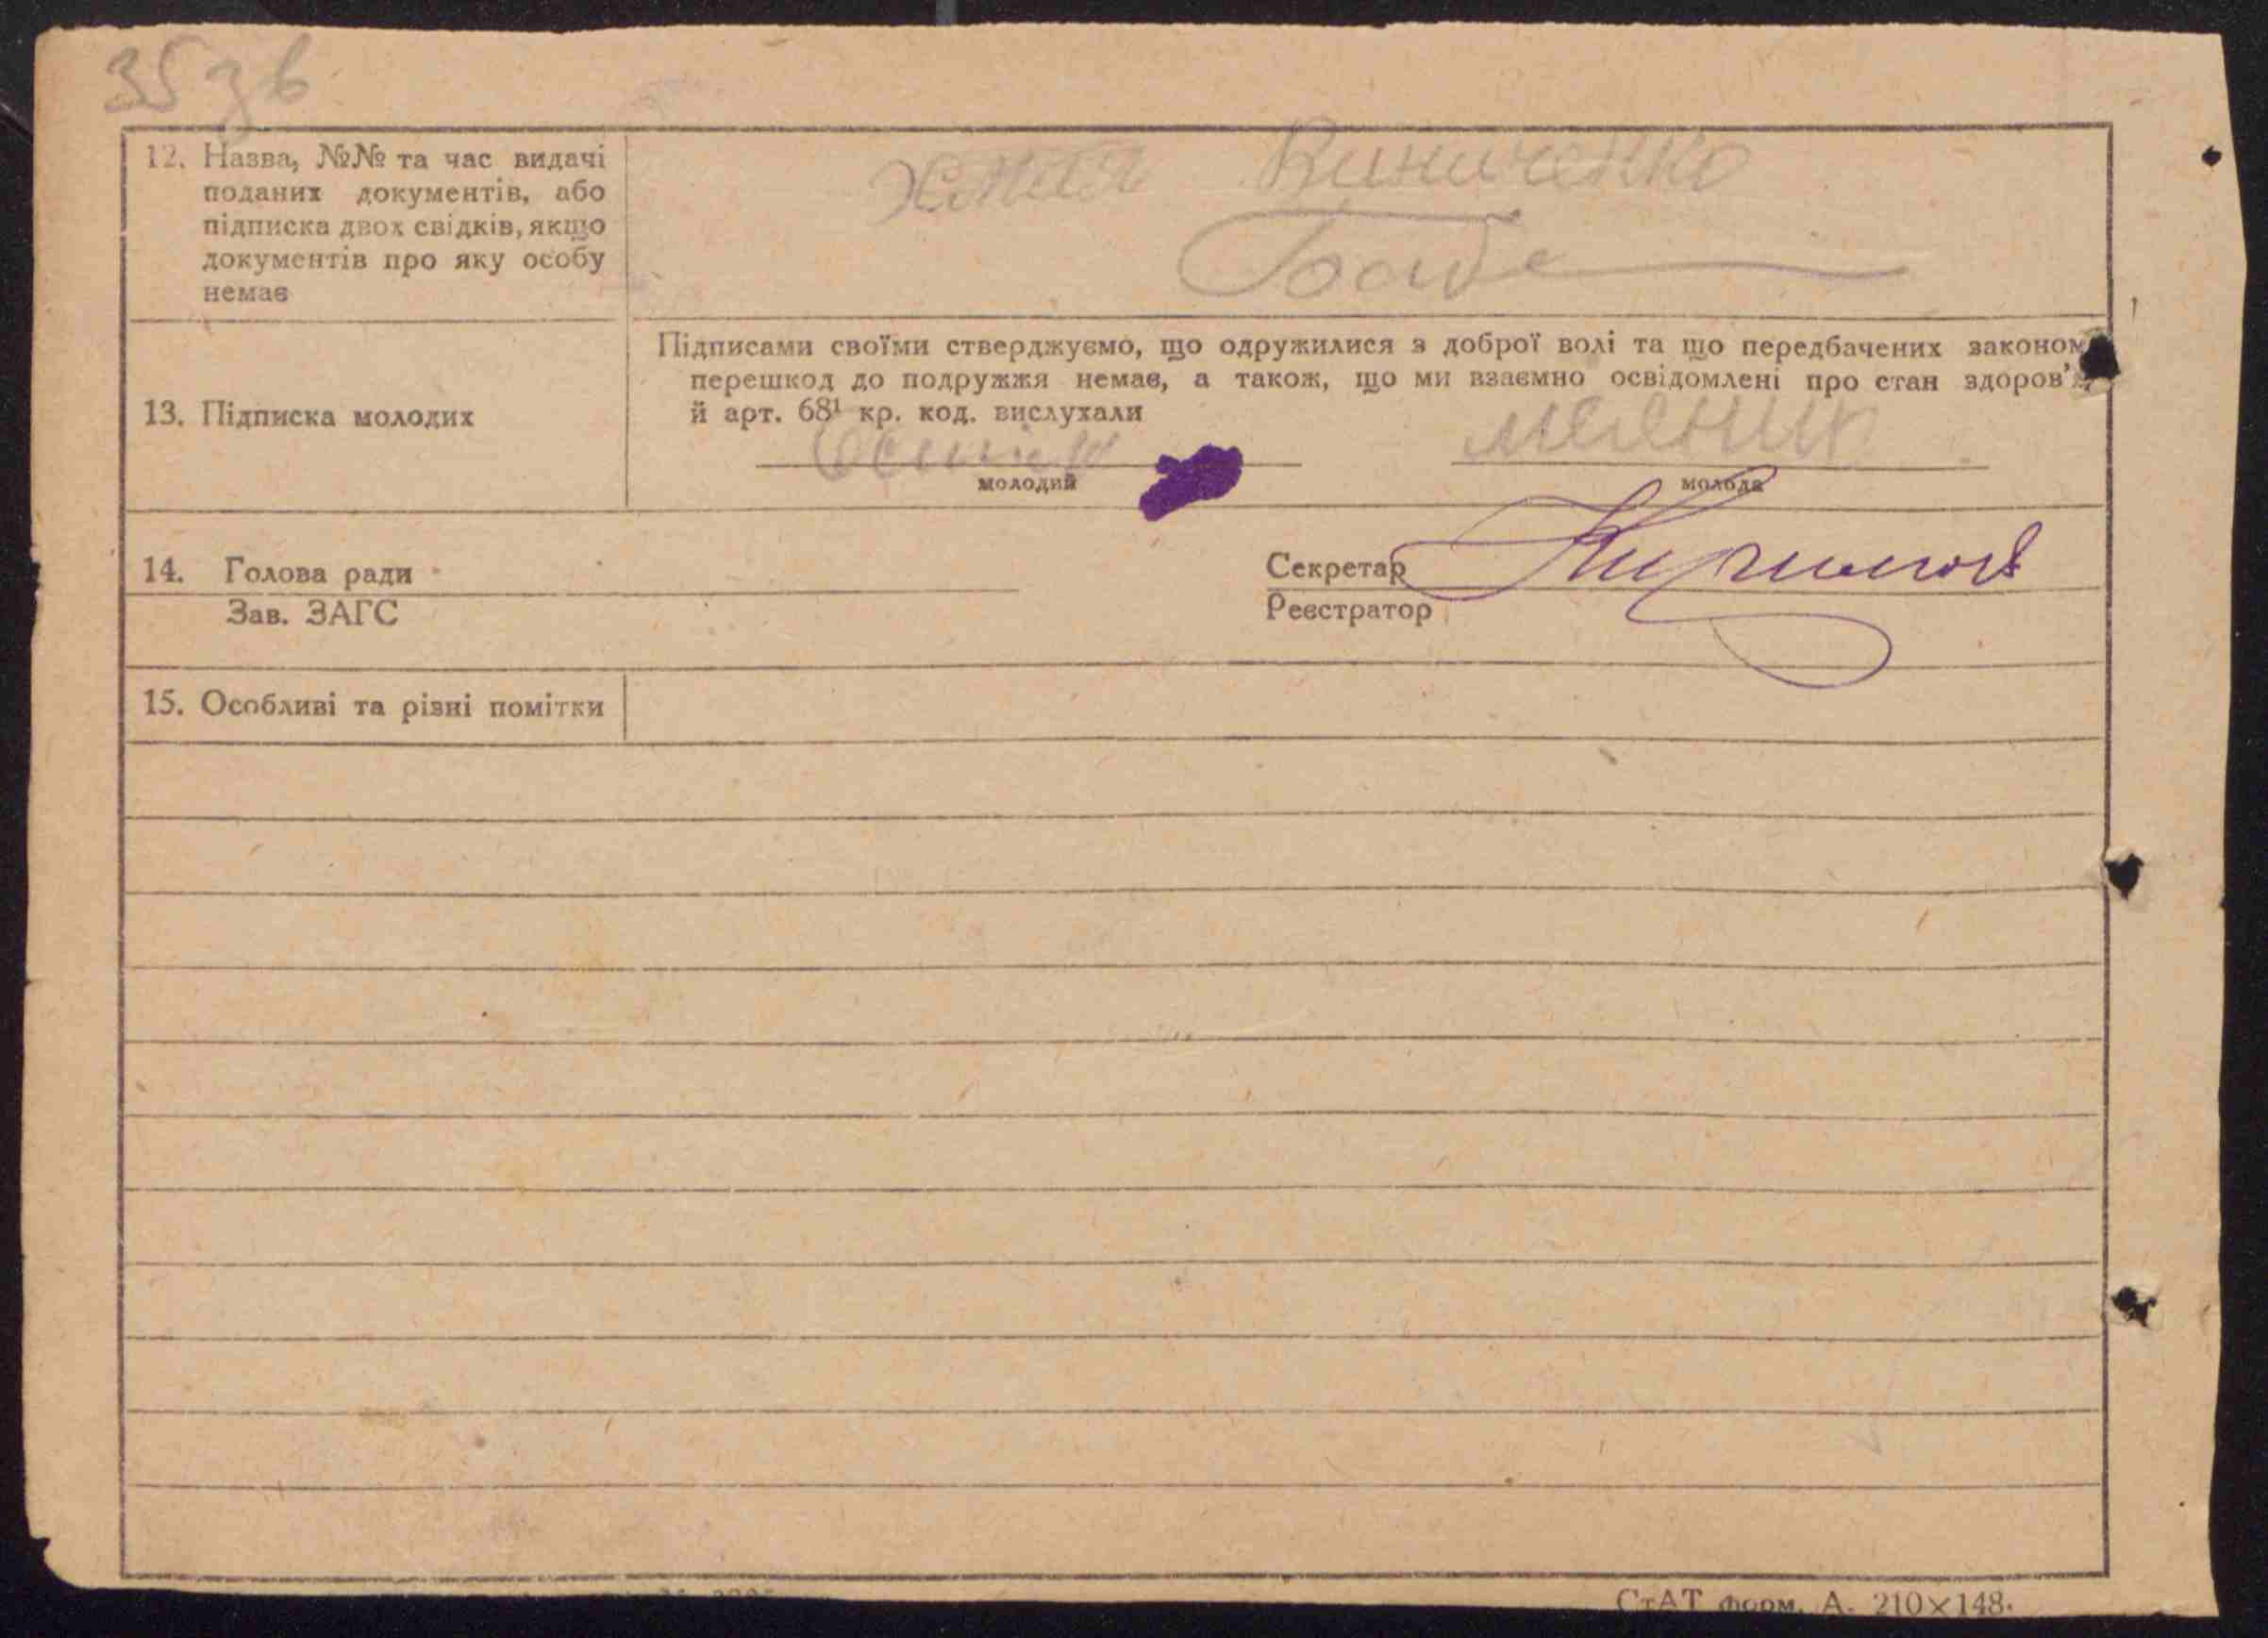 35 зв
12. Назва, №№ та час видачі
поданих документів, або
підписка двох свідків, якщо
документів про яку особу
немає
Виниченко
13. Підписка молодих
Підписами своїми стверджуємо, що одружилися з доброї волі та що передбачених законом
перешкод до подружжя немає, а також, що ми взаємно освідомлені про стан здоров'я
й арт. 68¹ кр. код. вислухали
молодий
молода
14. Голова ради
Зав. ЗАГС
Секретар
Реєстратор
15. Особливі та різні помітки
СтАТ форм. А. 210×148.